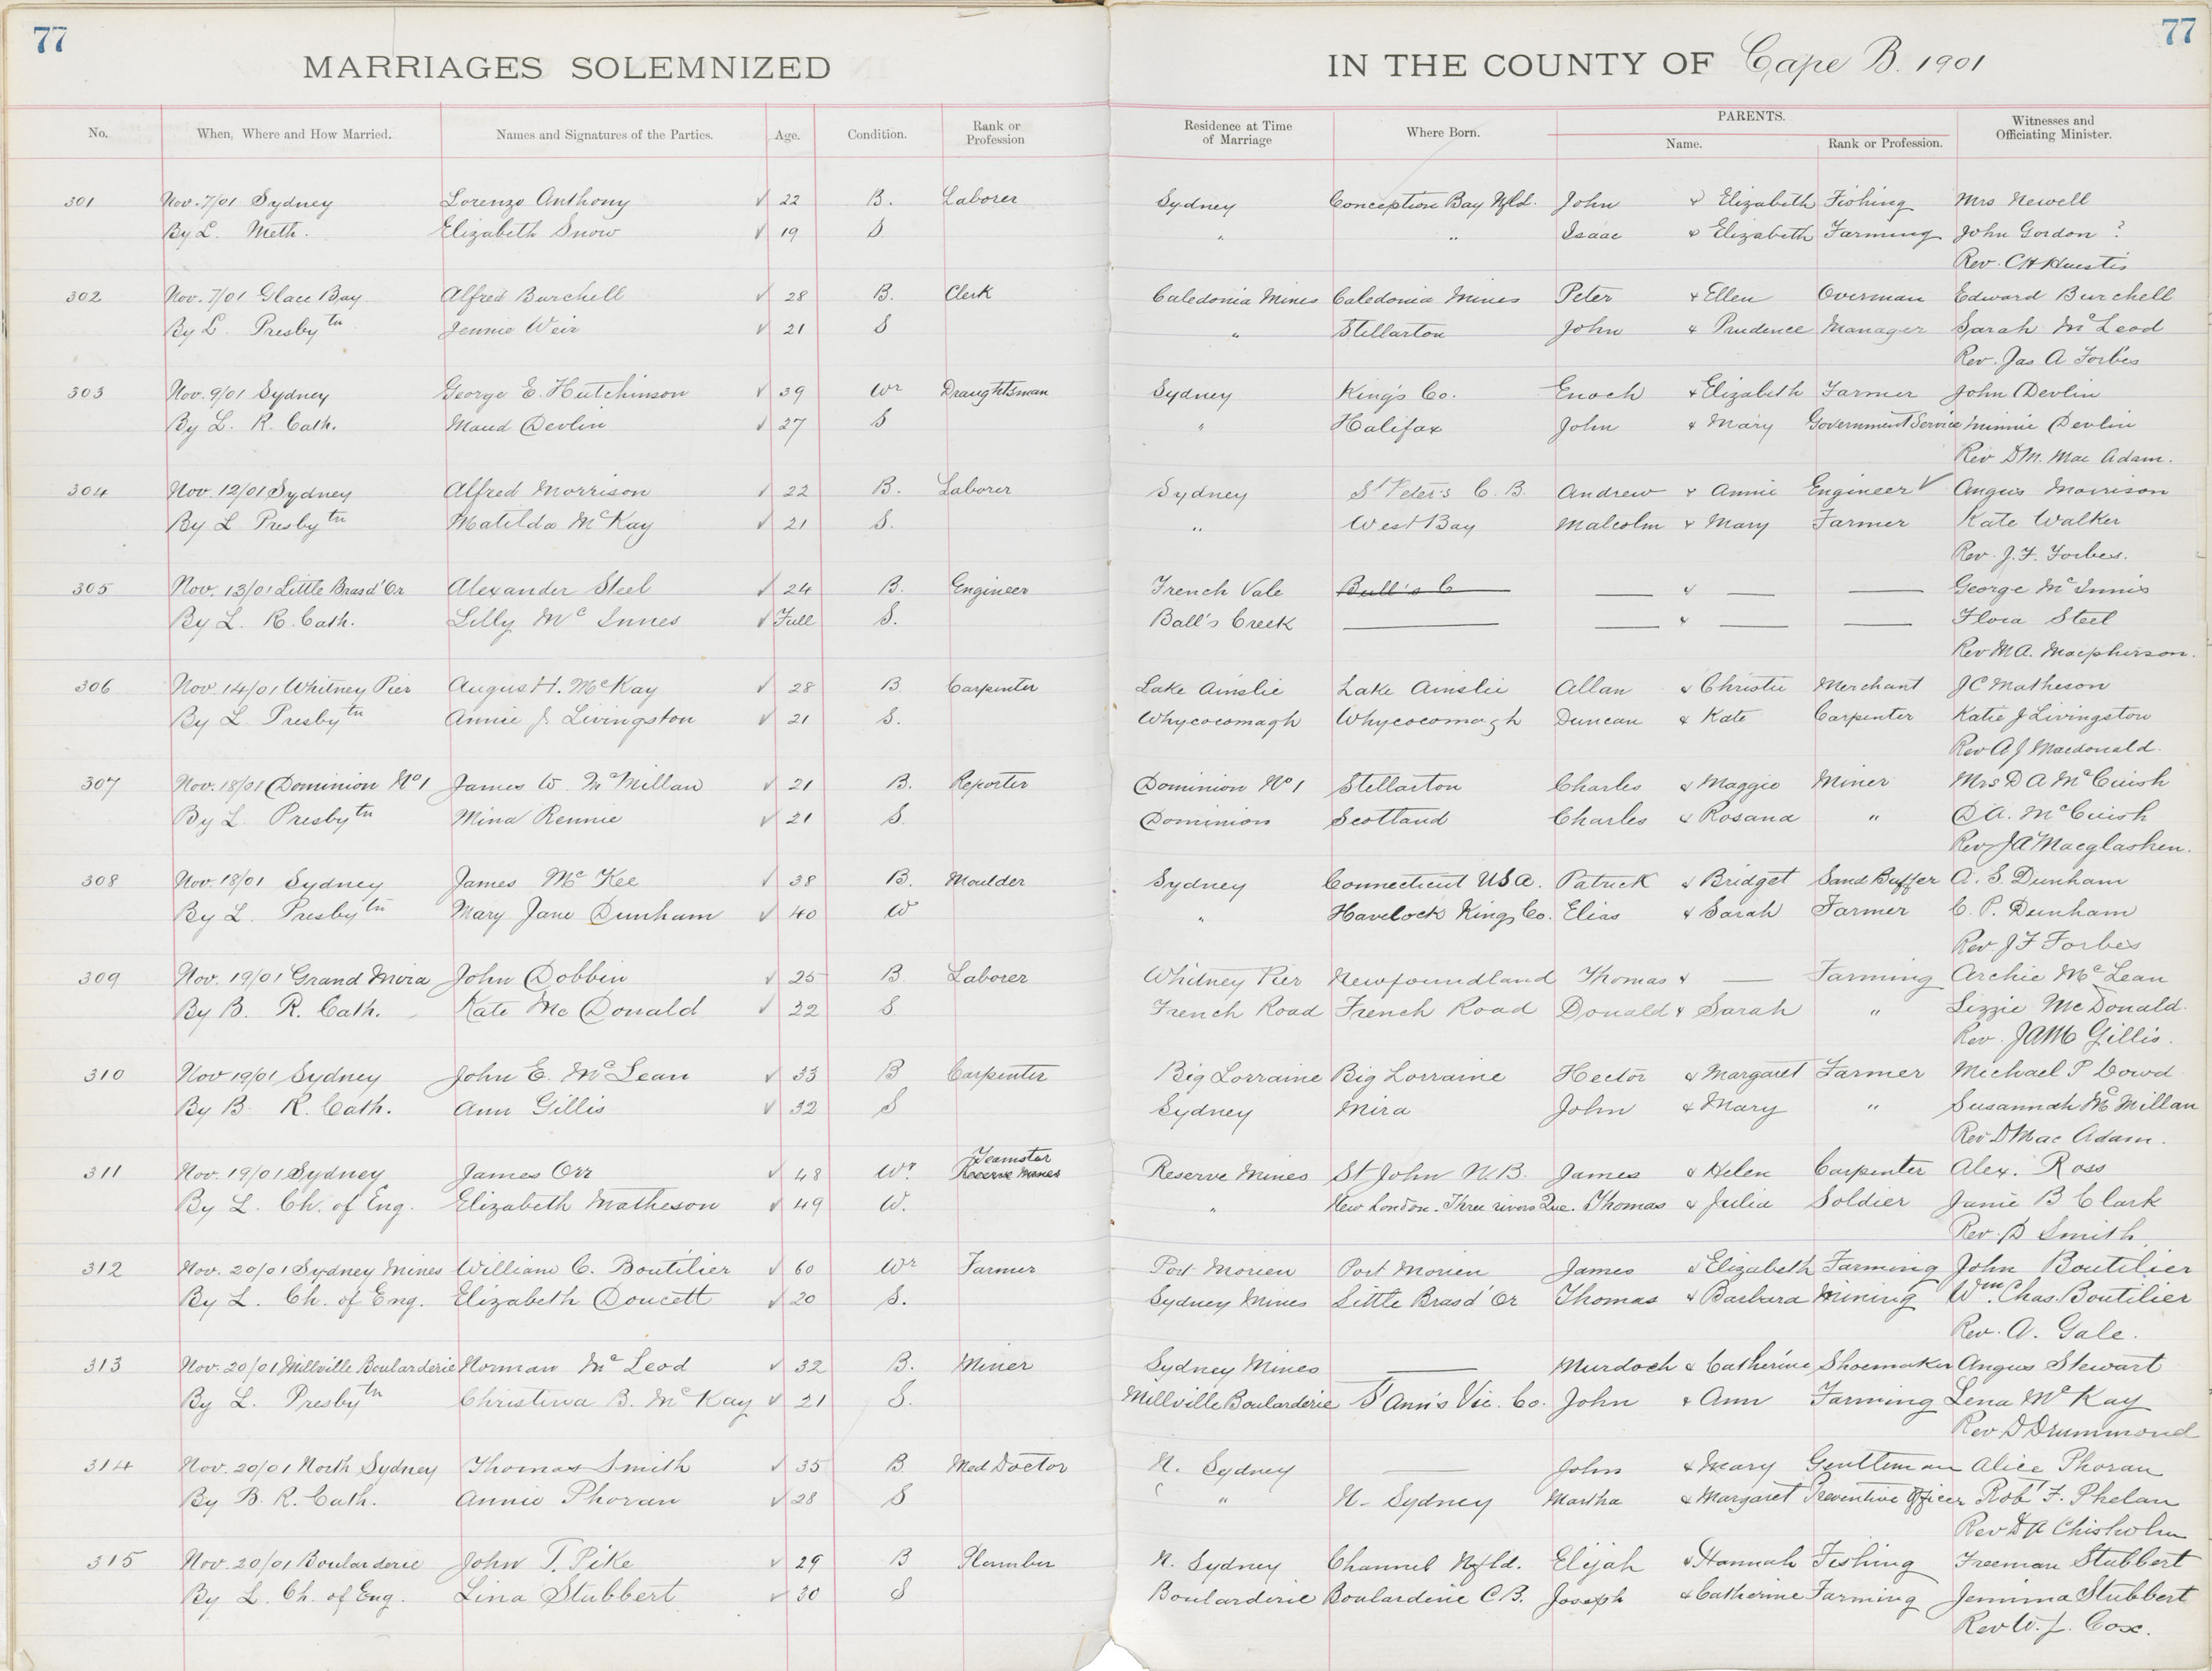 77
77
MARRIAGES SOLEMNIZED IN THE COUNTY OF Cape B. 1901
No. When, Where and How Married. Names and Signatures of the Parties. Age. Condition. Rank or Profession Residence at Time of Marriage Where Born. PARENTS. Name. Rank or Profession. Witnesses and Officiating Minister.
301 Nov. 7/01 Sydney Lorenzo Anthony ✓ 22 B. Laborer Sydney Conception Bay Nfld. John & Elizabeth Fishing Mrs Newell
By L. Meth. Elizabeth Snow ✓ 19 S " " Isaac & Elizabeth Farming John Gordon ?
Rev. CH Huestis
302 Nov. 7/01 Glace Bay Alfred Burchell ✓ 28 B. Clerk Caledonia Mines Caledonia Mines Peter & Ellen Overman Edward Burchell
By L. Presbytn Jennie Weir ✓ 21 S " Stellarton John & Prudence Manager Sarah McLeod
Rev. Jas A Forbes
303 Nov. 9/01 Sydney George E. Hutchinson ✓ 39 Wr Draughtsman Sydney King's Co. Enoch & Elizabeth Farmer John Devlin
By L. R. Cath. Maud Devlin ✓ 27 S " Halifax John & Mary Government Service Minnie Devlin
Rev DM. Mac Adam.
304 Nov. 12/01 Sydney Alfred Morrison ✓ 22 B. Laborer Sydney St Peter's C. B. Andrew & Annie Engineer ✓ Angus Morrison
By L Presbytn Matilda McKay ✓ 21 S. " West Bay Malcolm & Mary Farmer Kate Walker
Rev. J. F. Forbes.
305 Nov. 13/01 Little Bras d'Or Alexander Steel ✓ 24 B. Engineer French Vale Ball's C — & — — George McInnis
By L. R. Cath. Lilly McInnes ✓ Full S. Ball's Creek — — & — — Flora Steel
Rev MA. Macpherson.
306 Nov. 14/01 Whitney Pier Angus H. McKay ✓ 28 B Carpenter Lake Ainslie Lake Ainslie Allan & Christie Merchant JC Matheson
By L Presbytn Annie J. Livingston ✓ 21 S. Whycocomagh Whycocomagh Duncan & Kate Carpenter Katie J Livingston
Rev A J Macdonald.
307 Nov. 18/01 Dominion No 1 James W. McMillan ✓ 21 B. Reporter Dominion No 1 Stellarton Charles & Maggie Miner Mrs D A McCuish
By L. Presbytn Mina Rennie ✓ 21 S. Dominion Scotland Charles & Rosana " D A. McCuish
Rev JA Macglashen.
308 Nov. 18/01 Sydney James McKee ✓ 38 B. Moulder Sydney Connecticut USA. Patrick & Bridget Sand Buffer A. S. Dunham
By L. Presbytn Mary Jane Dunham ✓ 40 W " Havelock Kings Co. Elias & Sarah Farmer C. P. Dunham
Rev J F Forbes
309 Nov. 19/01 Grand Mira John Dobbin ✓ 25 B Laborer Whitney Pier Newfoundland Thomas & — Farming Archie McLean
By B. R. Cath. Kate McDonald ✓ 22 S French Road French Road Donald & Sarah " Lizzie McDonald.
Rev. JAM Gillis.
310 Nov 19/01 Sydney John E. McLean ✓ 33 B Carpenter Big Lorraine Big Lorraine Hector & Margaret Farmer Michael P Dowd
By B. R. Cath. Ann Gillis ✓ 32 S Sydney Mira John & Mary " Susannah McMillan
Rev DMac Adam.
Teamster
311 Nov. 19/01 Sydney James Orr ✓ 48 Wr. Reserve Mines Reserve Mines St John N.B. James & Helen Carpenter Alex. Ross
By L. Ch. of Eng. Elizabeth Matheson ✓ 49 W. " New London. Three rivers Que. Thomas & Julia Soldier Janie B Clark
Rev. D Smith
312 Nov. 20/01 Sydney Mines William C. Boutilier ✓ 60 Wr Farmer Port Morien Port Morien James & Elizabeth Farming John Boutilier
By L. Ch. of Eng. Elizabeth Doucett ✓ 20 S. Sydney Mines Little Bras d'Or Thomas & Barbara Mining Wm. Chas. Boutilier
Rev. A. Gale.
313 Nov. 20/01 Millville Boularderie Norman McLeod ✓ 32 B. Miner Sydney Mines — Murdoch & Catherine Shoemaker Angus Stewart
By L. Presbytn Christina B. McKay ✓ 21 S. Millville Boularderie St Ann's Vic. Co. John & Ann Farming Lena McKay
Rev D Drummond
314 Nov. 20/01 North Sydney Thomas Smith ✓ 35 B Med Doctor N. Sydney — John & Mary Gentleman Alice Phoran
By B. R. Cath. Annie Phoran ✓ 28 S " N. Sydney Martha & Margaret Preventive Officer Robt F. Phelan
Rev D A Chisholm
315 Nov. 20/01 Boularderie John T. Pike ✓ 29 B Plumber N. Sydney Channel Nfld. Elijah & Hannah Fishing Freeman Stubbert
By L. Ch. of Eng. Lina Stubbert ✓ 30 S Boularderie Boularderie C.B. Joseph & Catherine Farming Jemima Stubbert
Rev W. J. Cox.